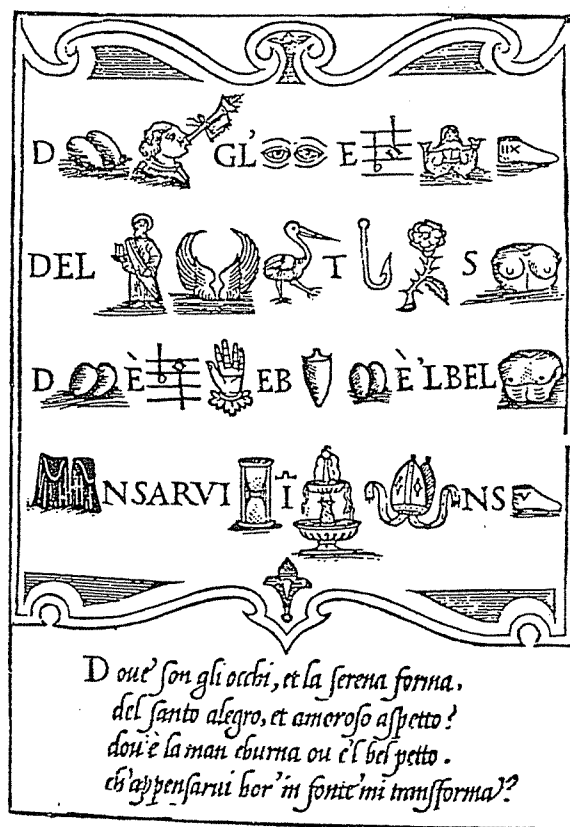 D GL' E IIX
DEL T S
D È EB È'LBEL
NSARVI I NS V
Doue' son gli occhi, et la serena forma.
del santo alegro, et amoroso aspetto?
dou'è la man eburna ou è'l bel petto.
ch'appensarui hor' in fonte' mi transforma?